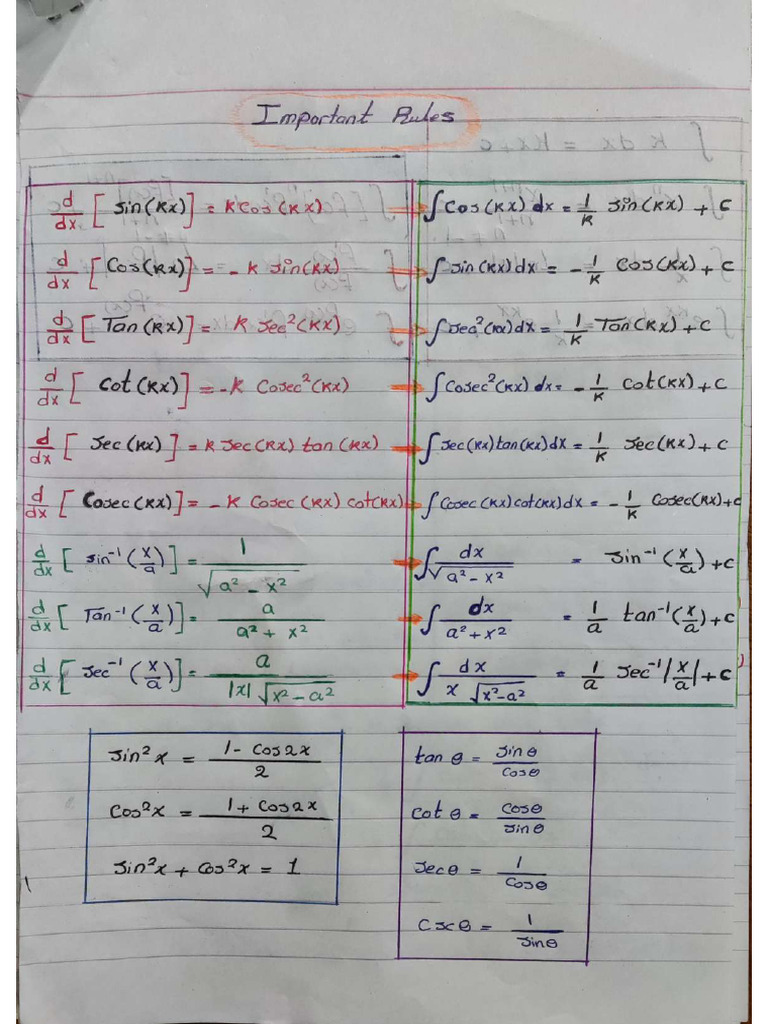 Important Rules
d/dx [ sin(kx) ] = k cos(kx) → ∫ cos(kx) dx = 1/k sin(kx) + c
d/dx [ cos(kx) ] = -k sin(kx) → ∫ sin(kx) dx = -1/k cos(kx) + c
d/dx [ Tan(kx) ] = k sec²(kx) → ∫ sec²(kx) dx = 1/k Tan(kx) + c
d/dx [ cot(kx) ] = -k cosec²(kx) → ∫ cosec²(kx) dx = -1/k cot(kx) + c
d/dx [ sec(kx) ] = k sec(kx) tan(kx) → ∫ sec(kx) tan(kx) dx = 1/k sec(kx) + c
d/dx [ Cosec(kx) ] = -k Cosec(kx) cot(kx) → ∫ Cosec(kx) cot(kx) dx = -1/k Cosec(kx) + c
d/dx [ sin⁻¹(x/a) ] = 1/√(a² - x²) → ∫ dx/√(a² - x²) = sin⁻¹(x/a) + c
d/dx [ Tan⁻¹(x/a) ] = a/(a² + x²) → ∫ dx/(a² + x²) = 1/a tan⁻¹(x/a) + c
d/dx [ sec⁻¹(x/a) ] = a/(|x| √(x² - a²)) → ∫ dx/(x √(x² - a²)) = 1/a sec⁻¹|x/a| + c
sin²x = (1 - cos2x)/2
cos²x = (1 + cos2x)/2
sin²x + cos²x = 1
tan θ = sinθ/cosθ
cot θ = cosθ/sinθ
secθ = 1/cosθ
cscθ = 1/sinθ